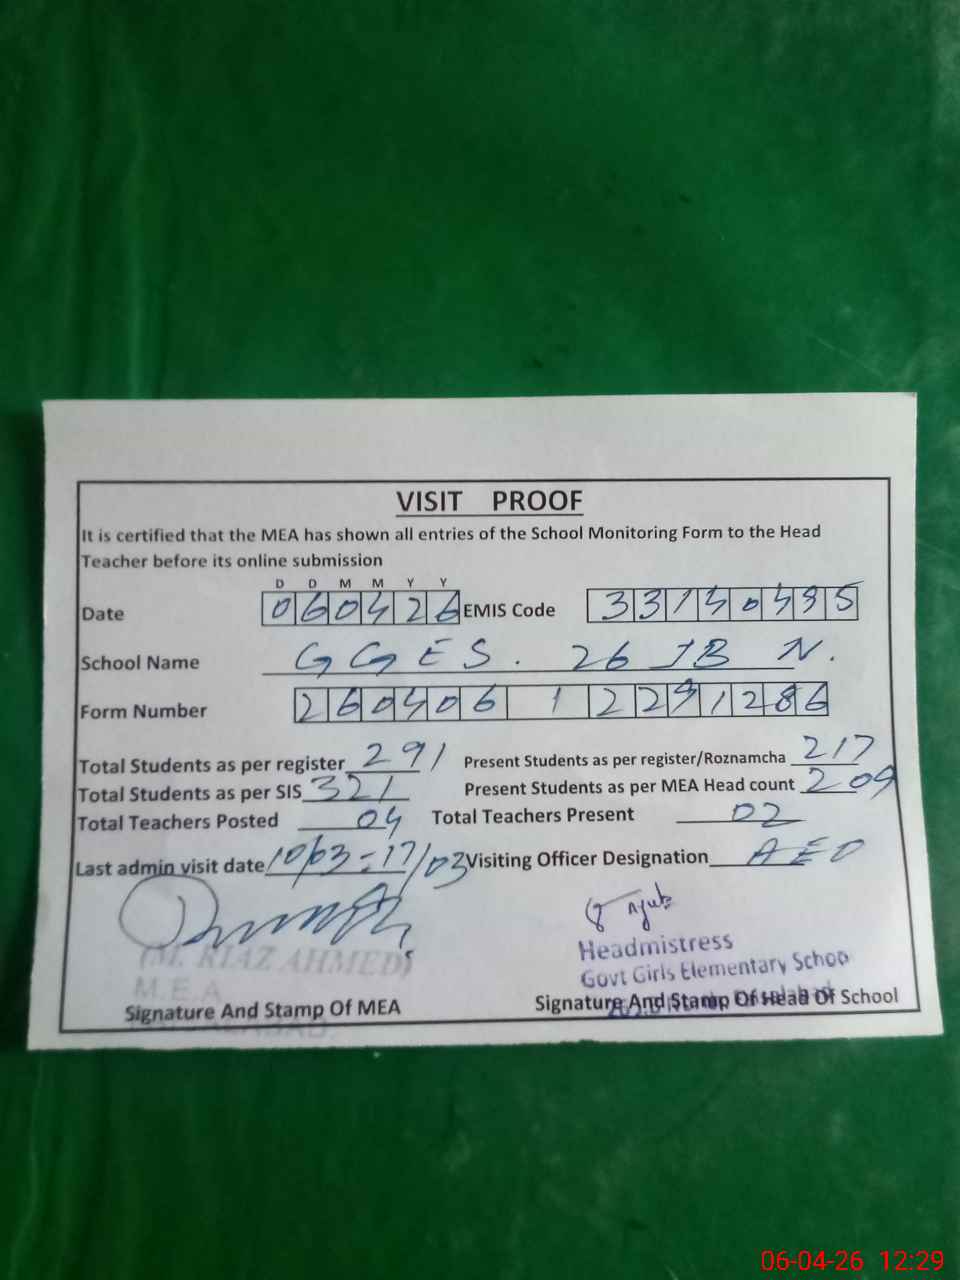 VISIT PROOF
It is certified that the MEA has shown all entries of the School Monitoring Form to the Head
Teacher before its online submission
D D M M Y Y
Date 060426 EMIS Code 33130495
School Name GGES. 26 JB N.
Form Number 260406 1 2291286
Total Students as per register 291 Present Students as per register/Roznamcha 217
Total Students as per SIS 321 Present Students as per MEA Head count 209
Total Teachers Posted 04 Total Teachers Present 02
Last admin visit date 10/03 - 17/03 Visiting Officer Designation AEO
(M. RIAZ AHMED)
M.E.A
Headmistress
Govt Girls Elementary School
Signature And Stamp Of MEA Signature And Stamp Of Head Of School
06-04-26 12:29